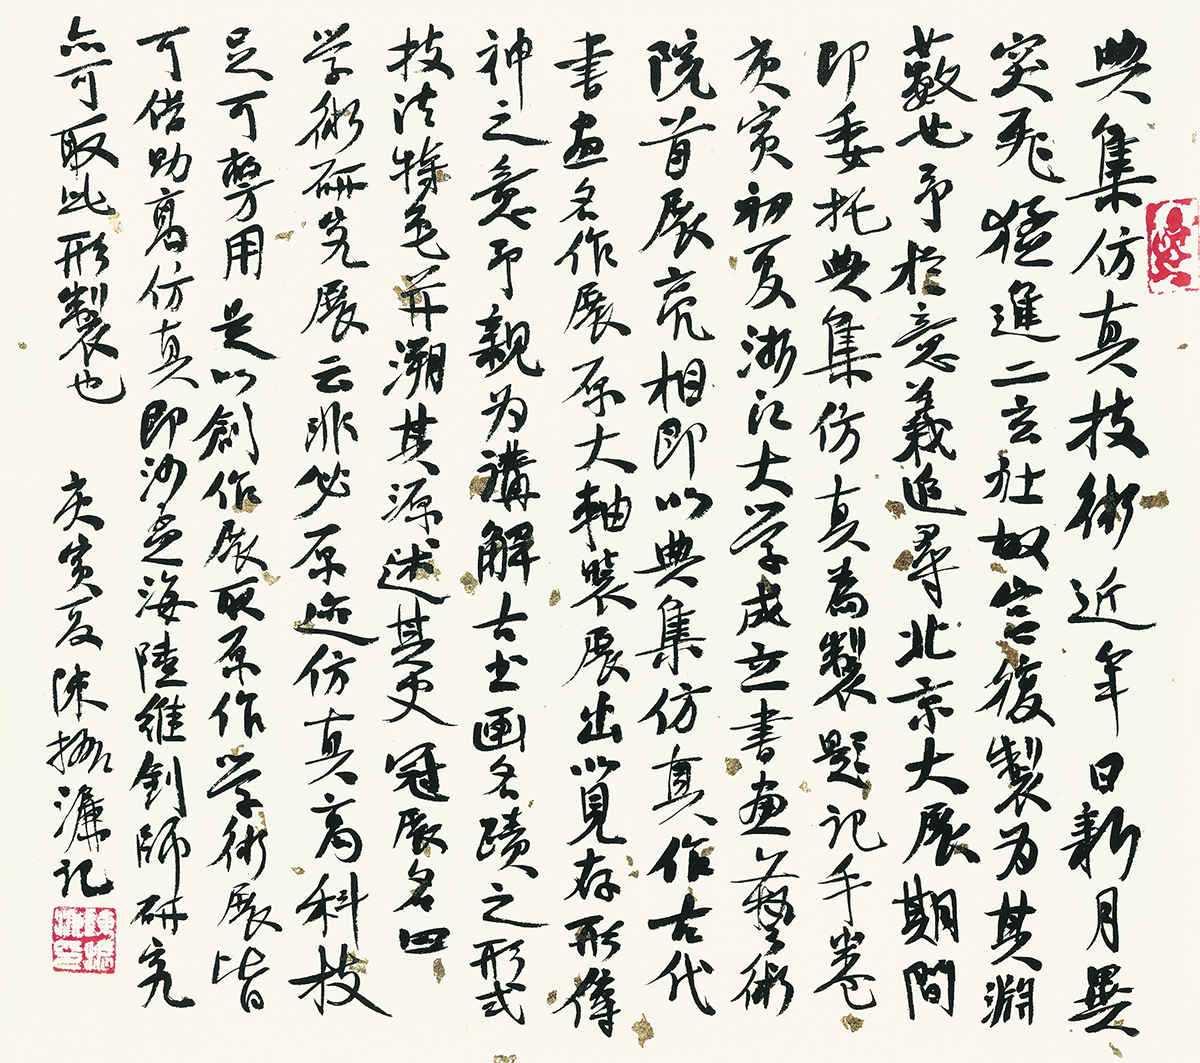 典集仿真技術近年日新月異
突飛猛進二玄社故宮復製为其淵
藪也予於意義追尋北京大展期間
即委托典集仿真為製題記手卷
庚寅初夏浙江大学成立書画藝術
院首展亮相即以典集仿真作古代
書画名作展原大軸裝展出以見存形傳
神之意予親为講解古书画名蹟之形式
技法特色并溯其源述其史冠展名曰
学術研究展云非必原迹仿真高科技
足可擎用是以創作展取原作学術展皆
可借助高仿真即沙孟海陸維釗師研究
亦可取此形製也
庚寅夏陳振濂记